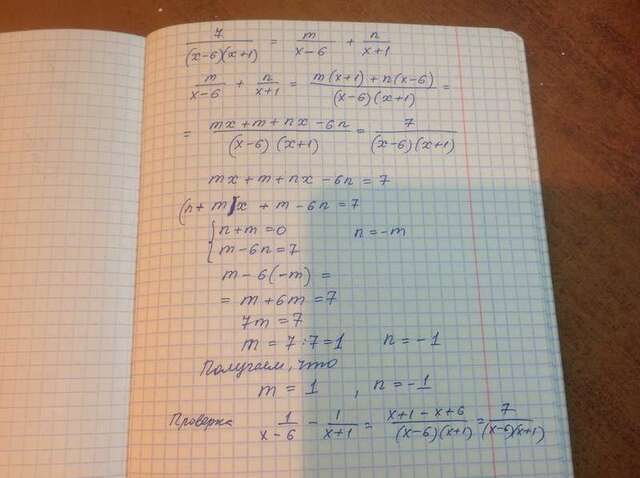 7/((x-6)(x+1)) = m/(x-6) + n/(x+1)
m/(x-6) + n/(x+1) = (m(x+1)+n(x-6))/((x-6)(x+1)) =
= (mx+m+nx-6n)/((x-6)(x+1)) = 7/((x-6)(x+1))
mx+m+nx-6n=7
(n+m)x+m-6n=7
{n+m=0 n=-m
{m-6n=7
m-6(-m)=
=m+6m=7
7m=7
m=7:7=1 n=-1
Получаем, что
m=1, n=-1
Проверка 1/(x-6) - 1/(x+1) = (x+1-x+6)/((x-6)(x+1)) = 7/((x-6)(x+1))